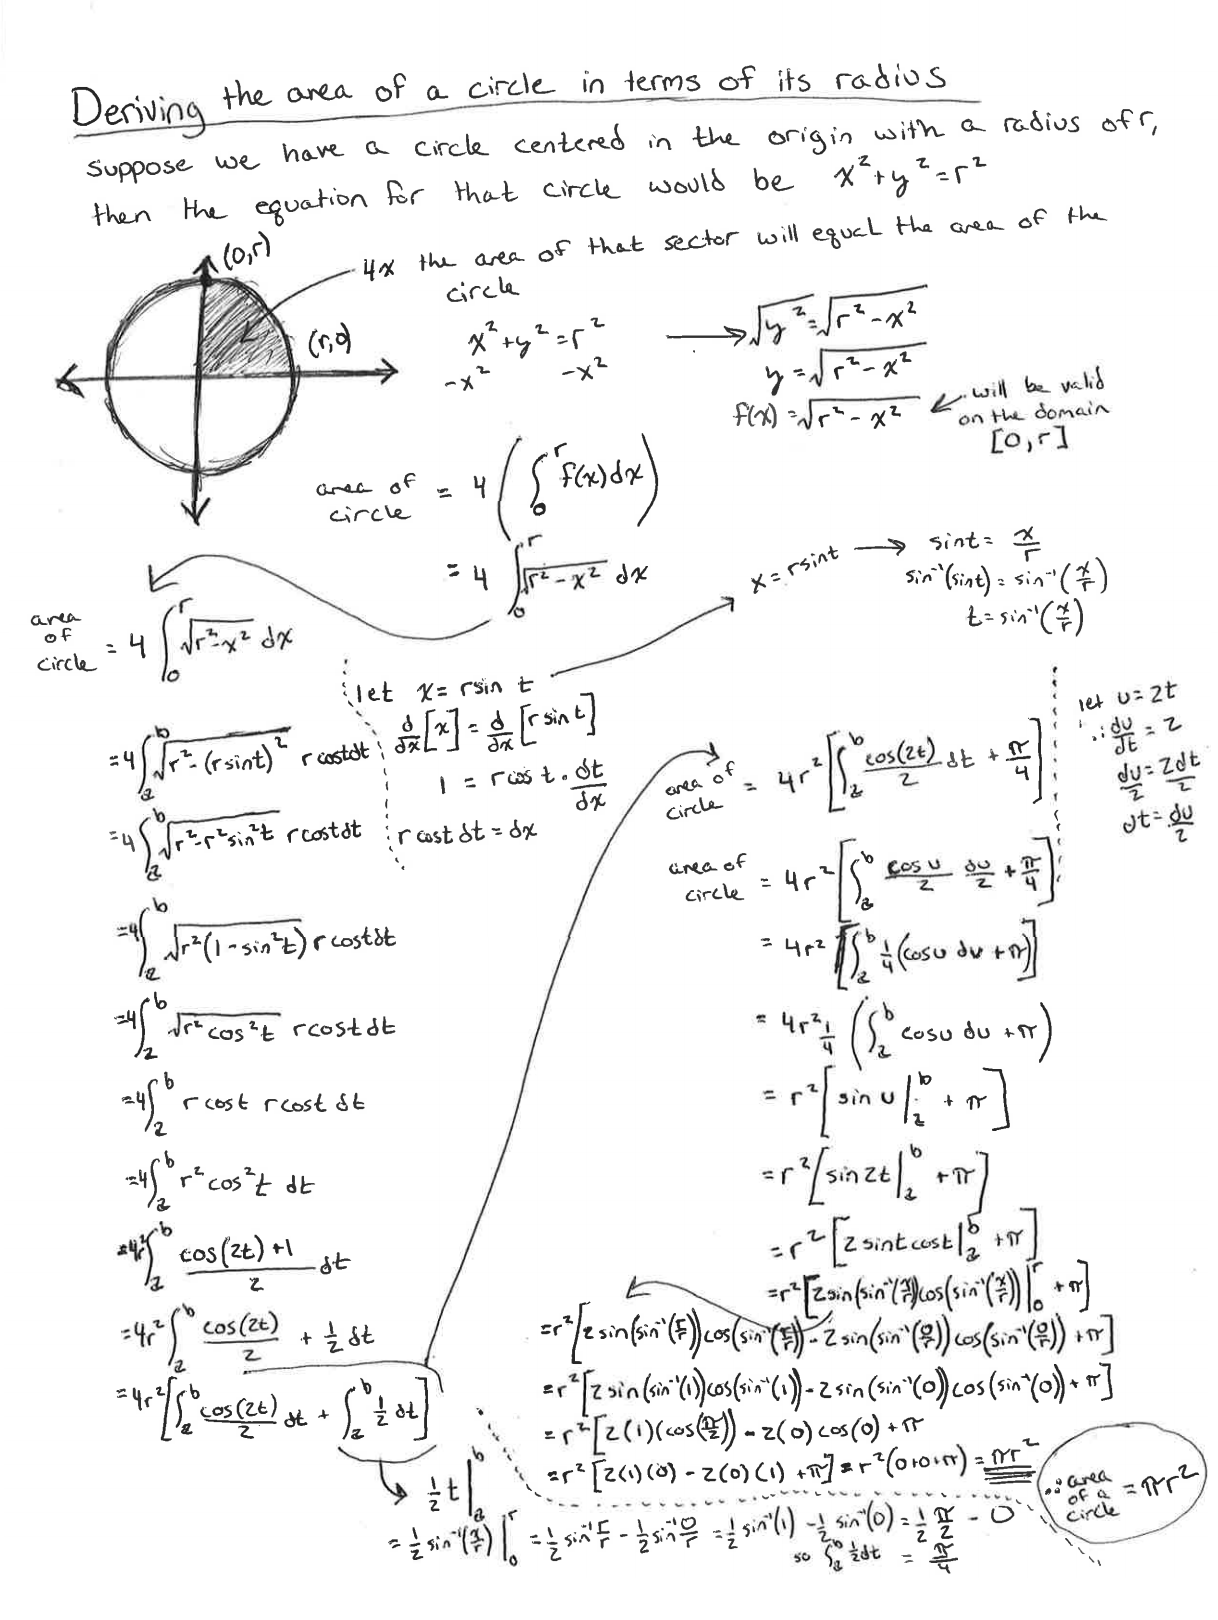 Deriving the area of a circle in terms of its radius
suppose we have a circle centered in the origin with a radius of r,
then the equation for that circle would be x²+y²=r²
(0,r)
4x the area of that sector will equal the area of the
circle
(r,0)
x²+y²=r² → √y² = √r²-x²
-x² -x²
y = √r²-x²
f(x) = √r²-x² ← will be valid
on the domain
[0,r]
area of circle = 4(∫₀ʳ f(x)dx)
= 4∫₀ʳ √r²-x² dx
x = rsint → sint = x/r
sin⁻¹(sint) = sin⁻¹(x/r)
t = sin⁻¹(x/r)
area of circle = 4∫₀ʳ √r²-x² dx
let x = rsin t
d/dx[x] = d/dx[r sin t]
1 = rcos t · dt/dx
r cost dt = dx
= 4∫ₐᵇ √r²-(rsint)² r costdt
= 4∫ₐᵇ √r²-r²sin²t rcostdt
= 4∫ₐᵇ √r²(1-sin²t) rcostdt
= 4∫ₐᵇ √r²cos²t rcost dt
= 4∫ₐᵇ rcost rcost dt
= 4∫ₐᵇ r²cos²t dt
= 4r²∫ₐᵇ cos(2t)+1/2 dt
= 4r²∫ₐᵇ cos(2t)/2 + 1/2 dt
= 4r²[∫ₐᵇ cos(2t)/2 dt + ∫ₐᵇ 1/2 dt]
1/2 t |ₐᵇ
= 1/2 sin⁻¹(x/r) |₀ʳ = 1/2 sin⁻¹ r/r - 1/2 sin⁻¹ 0/r = 1/2 sin⁻¹(1) - 1/2 sin⁻¹(0) = 1/2 π/2 - 0
so ∫ₐᵇ 1/2 dt = π/4
let u = 2t
∴ du/dt = 2
du/2 = 2dt/2
dt = du/2
area of circle = 4r²[∫ₐᵇ cos(2t)/2 dt + π/4]
area of circle = 4r²[∫ₐᵇ cosu/2 du/2 + π/4]
= 4r²[∫ₐᵇ 1/4(cosu du + π)]
= 4r² 1/4 (∫ₐᵇ cosu du + π)
= r²[sin u |ₐᵇ + π]
= r²[sin2t |ₐᵇ + π]
= r²[2sintcost |ₐᵇ + π]
= r²[2sin(sin⁻¹(x/r))cos(sin⁻¹(x/r)) |₀ʳ + π]
= r²[2sin(sin⁻¹(r/r))cos(sin⁻¹(r/r)) - 2sin(sin⁻¹(0/r))cos(sin⁻¹(0/r)) + π]
= r²[2sin(sin⁻¹(1))cos(sin⁻¹(1)) - 2sin(sin⁻¹(0))cos(sin⁻¹(0)) + π]
= r²[2(1)(cos(π/2)) - 2(0)cos(0) + π
= r²[2(1)(0) - 2(0)(1) + π] = r²(0+0+π) = πr²
∴ area of a circle = πr²